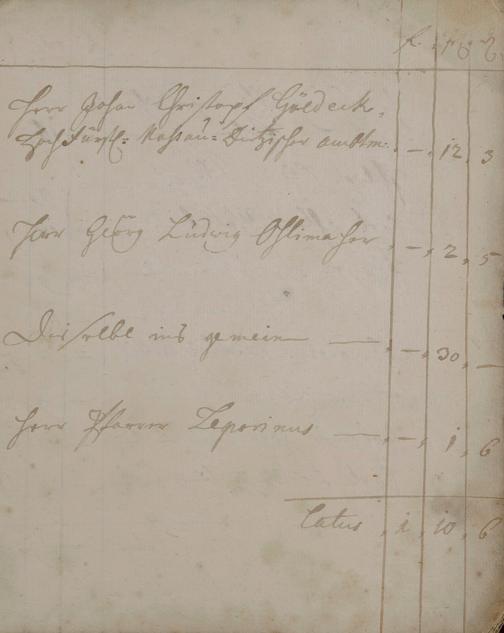 Herr Johan Christoph Gödeck,
HochFürstl: Nassau= Dietzischer ambtm: . — . 12 . 3
Herr Georg Lüdwig Ohlimacher . — . 2 . 5
Dieselbe ins gemein — . — . 30 . —
Herr Pfarrer Leporinus — . — . 1 . 6
Latus . 1 . 10 . 6